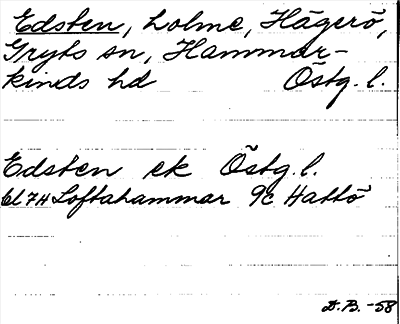 Edsten, holme, Hägerö,
Gryts sn, Hammar-
kinds hd Östg. l.
Edsten ek Östg. l.
6l7H Loftahammar 9c Hattö
D.B. -58